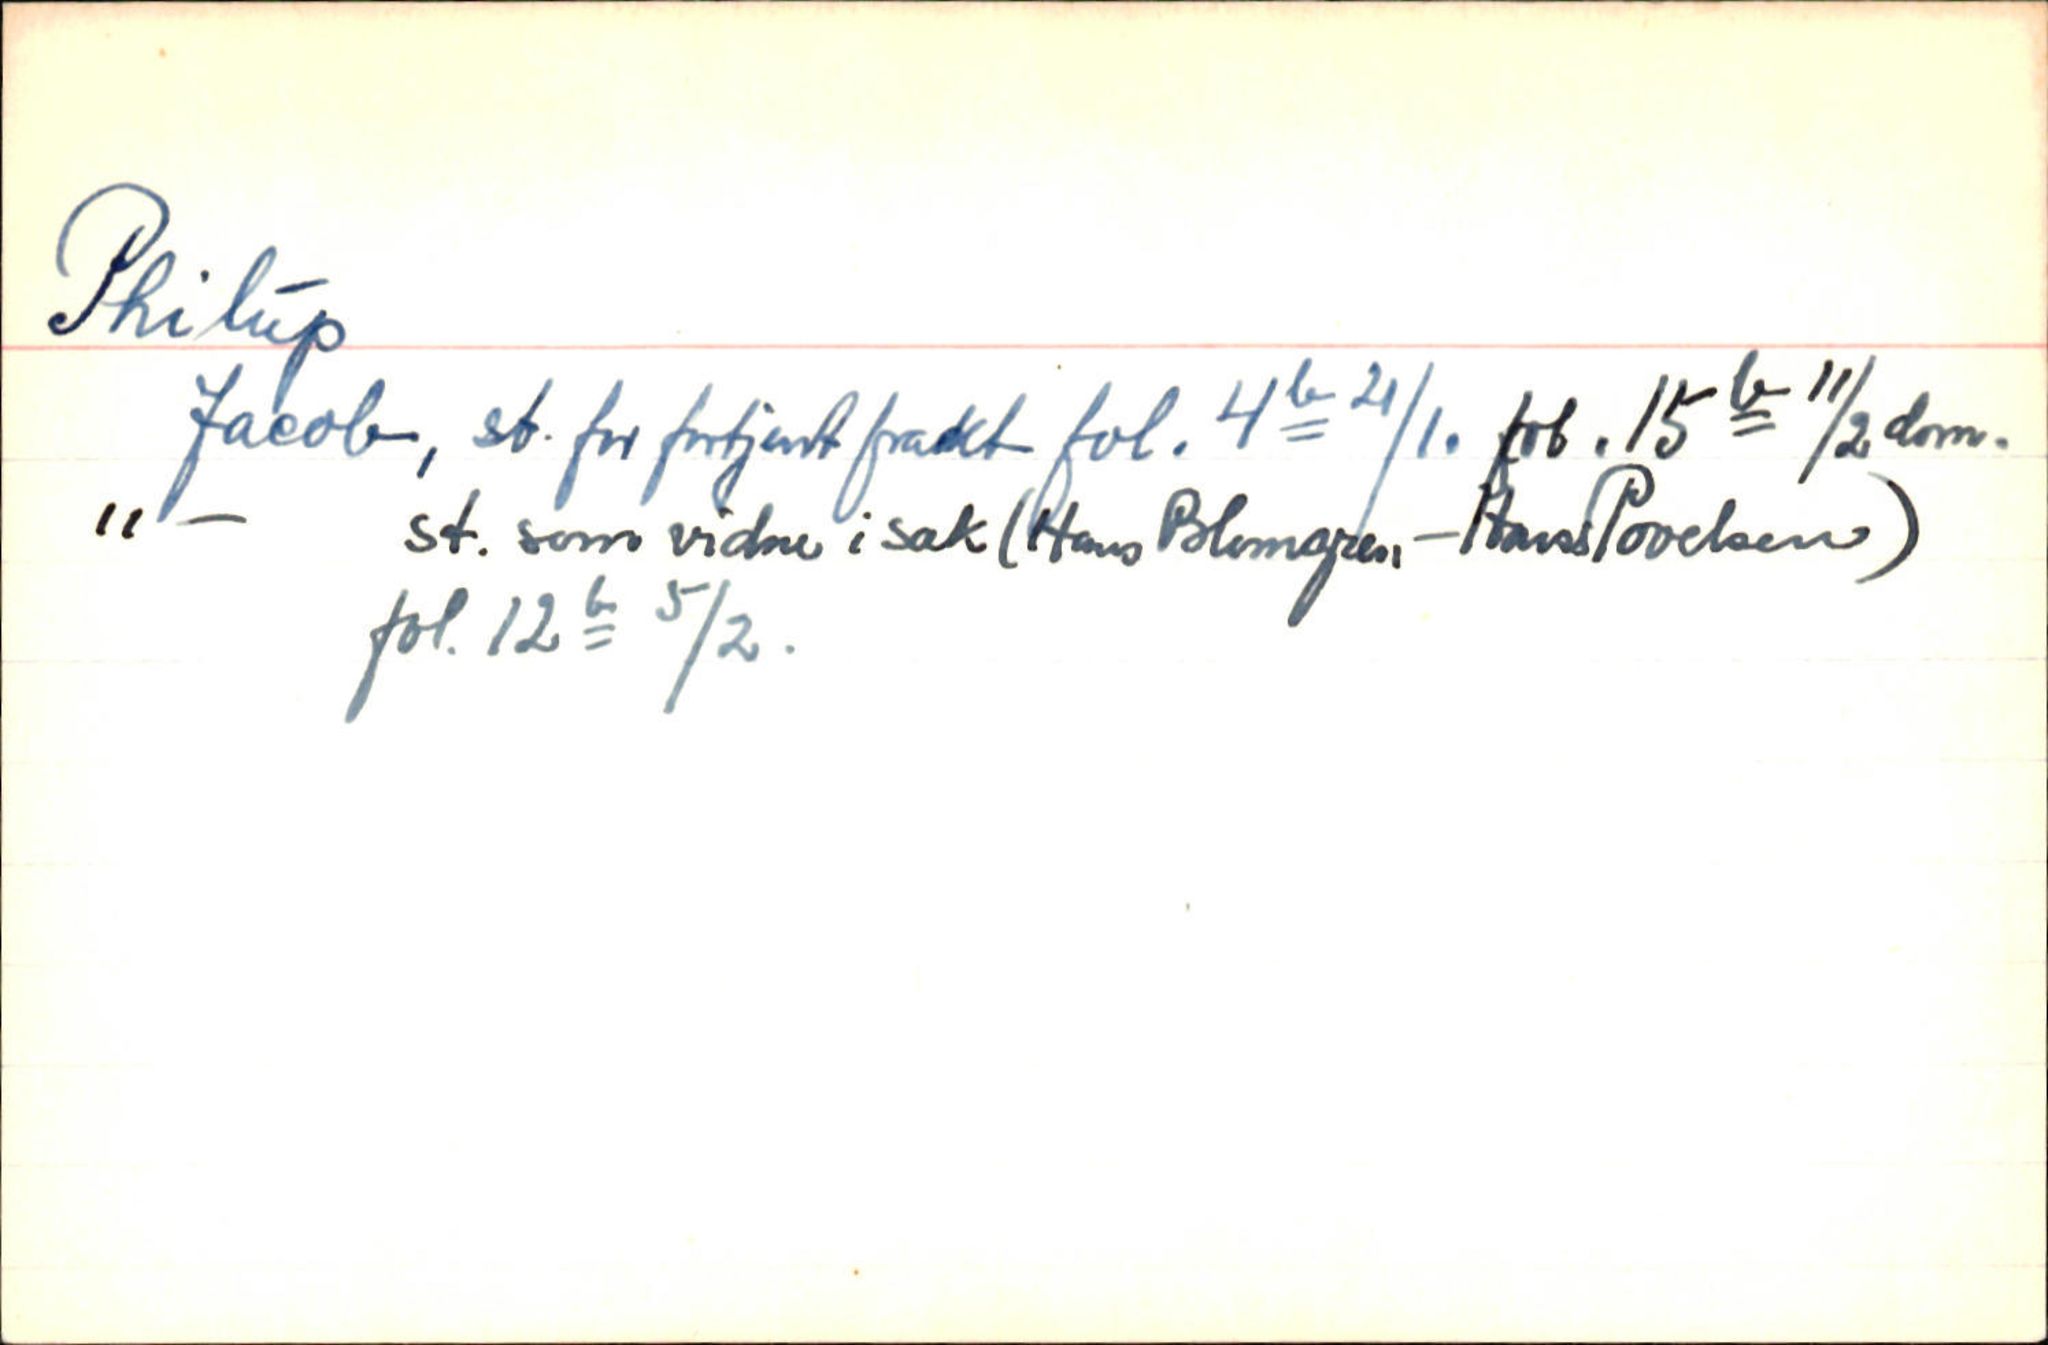 Philup
Jacob, st. for fortjent frakt fol. 4b 21/1. fol. 15b 11/2 dom.
" — st. som vidne i sak (Hans Blomgren, - Hans Povelsen)
fol. 12b 5/2.